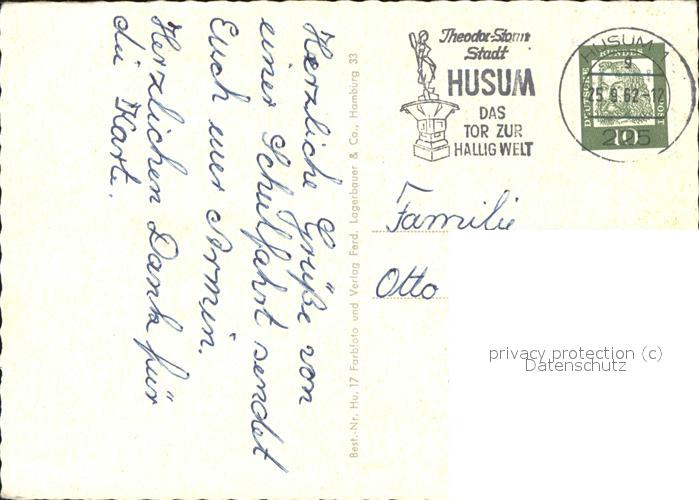 Herzliche Grüße von
einer Schulfahrt sendet
Euch euer Armin.
Herzlichen Dank für
die Karte.
Best.-Nr. Hu. 17 Farbfoto und Verlag Ferd. Lagerbauer & Co., Hamburg 33
Theodor-Storm
Stadt
HUSUM
DAS
TOR ZUR
HALLIG WELT
HUSUM 1
g
25.9.62-12
DEUTSCHE
BUNDES
POST
10
Familie
Otto
privacy protection (c)
Datenschutz